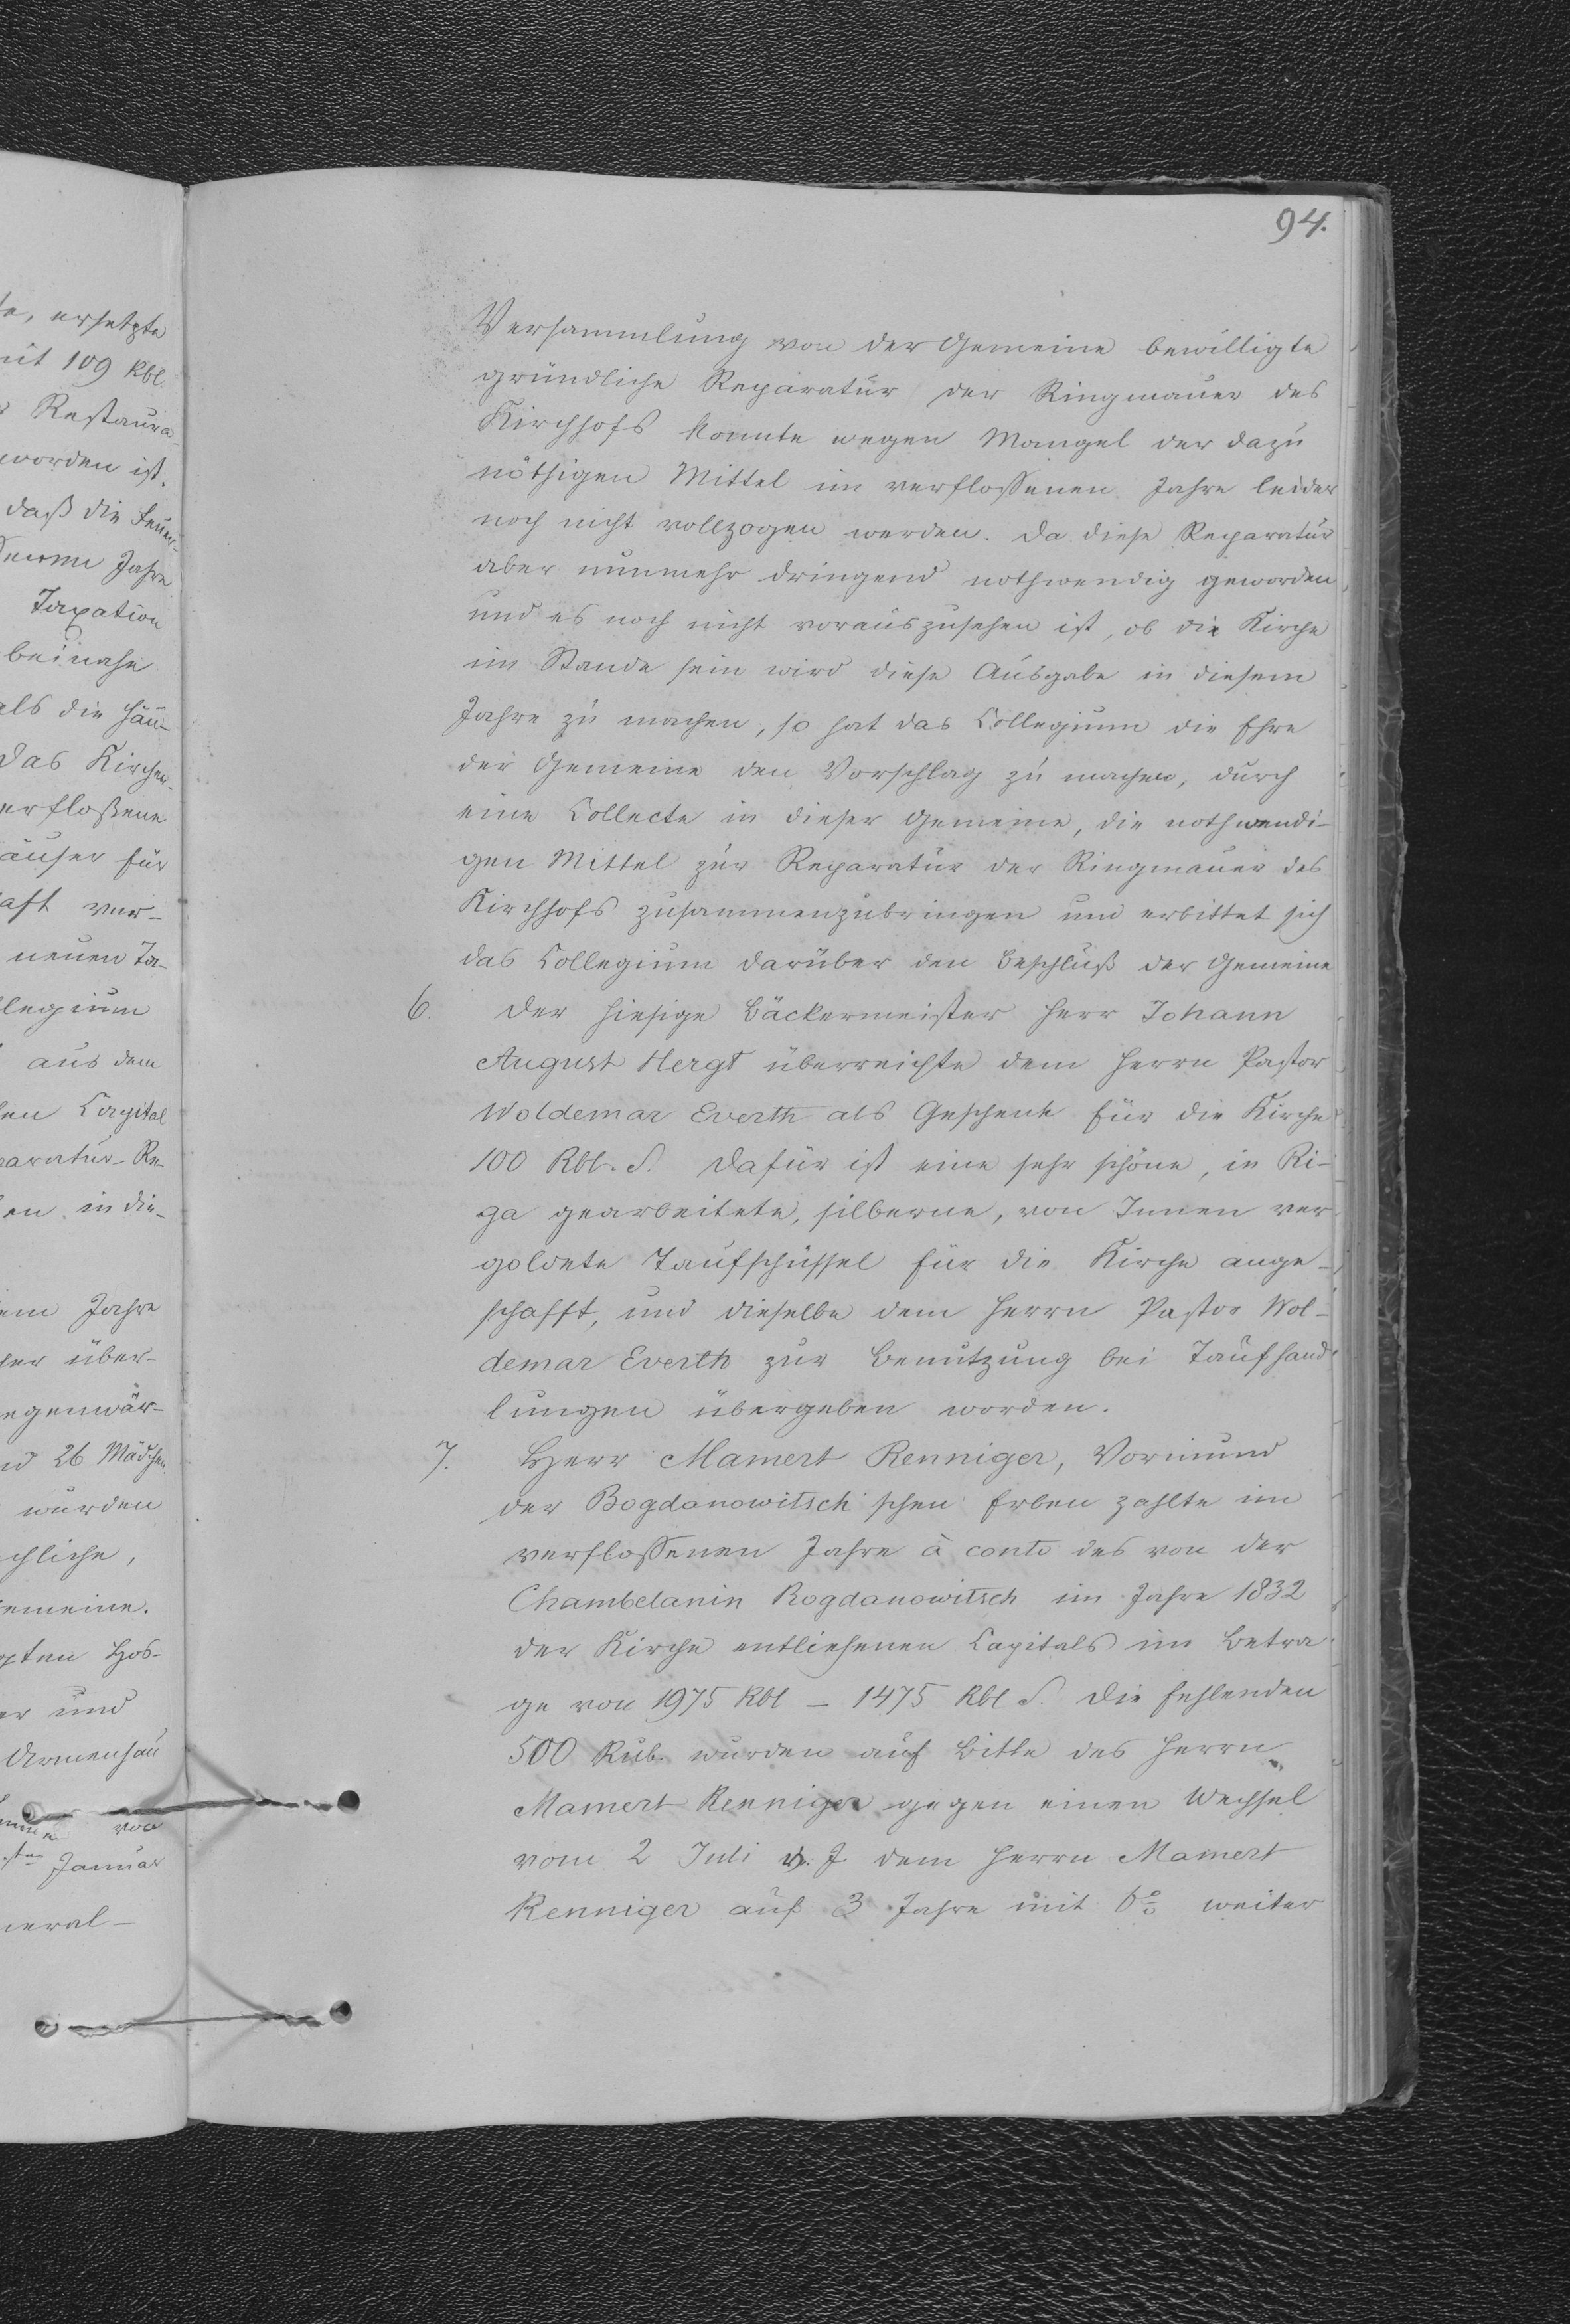 94.
Versammlung von der Gemeine bewilligte
gründliche Reparatur der Ringmauer des
Kirchhofs konnte wegen Mangel der dazu
nöthigen Mittel im verflossenen Jahre leider
noch nicht vollzogen werden. Da diese Reparatur
aber nunmehr dringend nothwendig geworden
und es noch nicht vorauszusehen ist, ob die Kirche
im Stande sein wird diese Ausgabe in diesem
Jahre zu machen, so hat das Collegium die Ehre
der Gemeine den Vorschlag zu machen, durch
eine Collecte in dieser Gemeine, die nothwendi-
gen Mittel zur Reparatur der Ringmauer des
Kirchhofs zusammenzubringen und erbittet sich
das Collegium darüber den Beschluß der Gemeine
6. Der hiesige Bäckermeister Herr Johann
August Hergt überreichte dem Herrn Pastor
Woldemar Everth als Geschenk für die Kirche
100 Rbl. S. Dafür ist eine sehr schöne, in Ri-
ga gearbeitete, silberne, von Innen ver
goldete Taufschüssel für die Kirche ange-
schafft, und dieselbe dem Herrn Pastor Wol-
demar Everth zur Benutzung bei Taufhand
lungen übergeben worden.
7. Herr Mamert Renniger, Vormund
der Bogdanowitsch'schen Erben zahlte im
verflossenen Jahre à conto des von der
Chambelanin Bogdanowitsch im Jahre 1832
der Kirche entliehenen Capitals im Betra-
ge von 1975 Rbl – 1475 Rbl S. Die fehlenden
500 Rub. wurden auf Bitte des Herrn
Mamert Renniger gegen einen Wechsel
vom 2 Juli v. J. dem Herrn Mamert
Renniger auf 3 Jahre mit 6% weiter